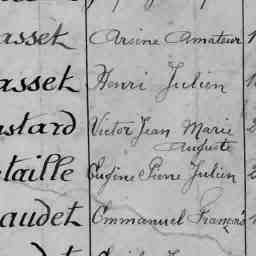 asset Arsène Amateur
asset Henri Julien
ustard Victor Jean Marie
Auguste
etaille Eugène Pierre Julien
audet Emmanuel François